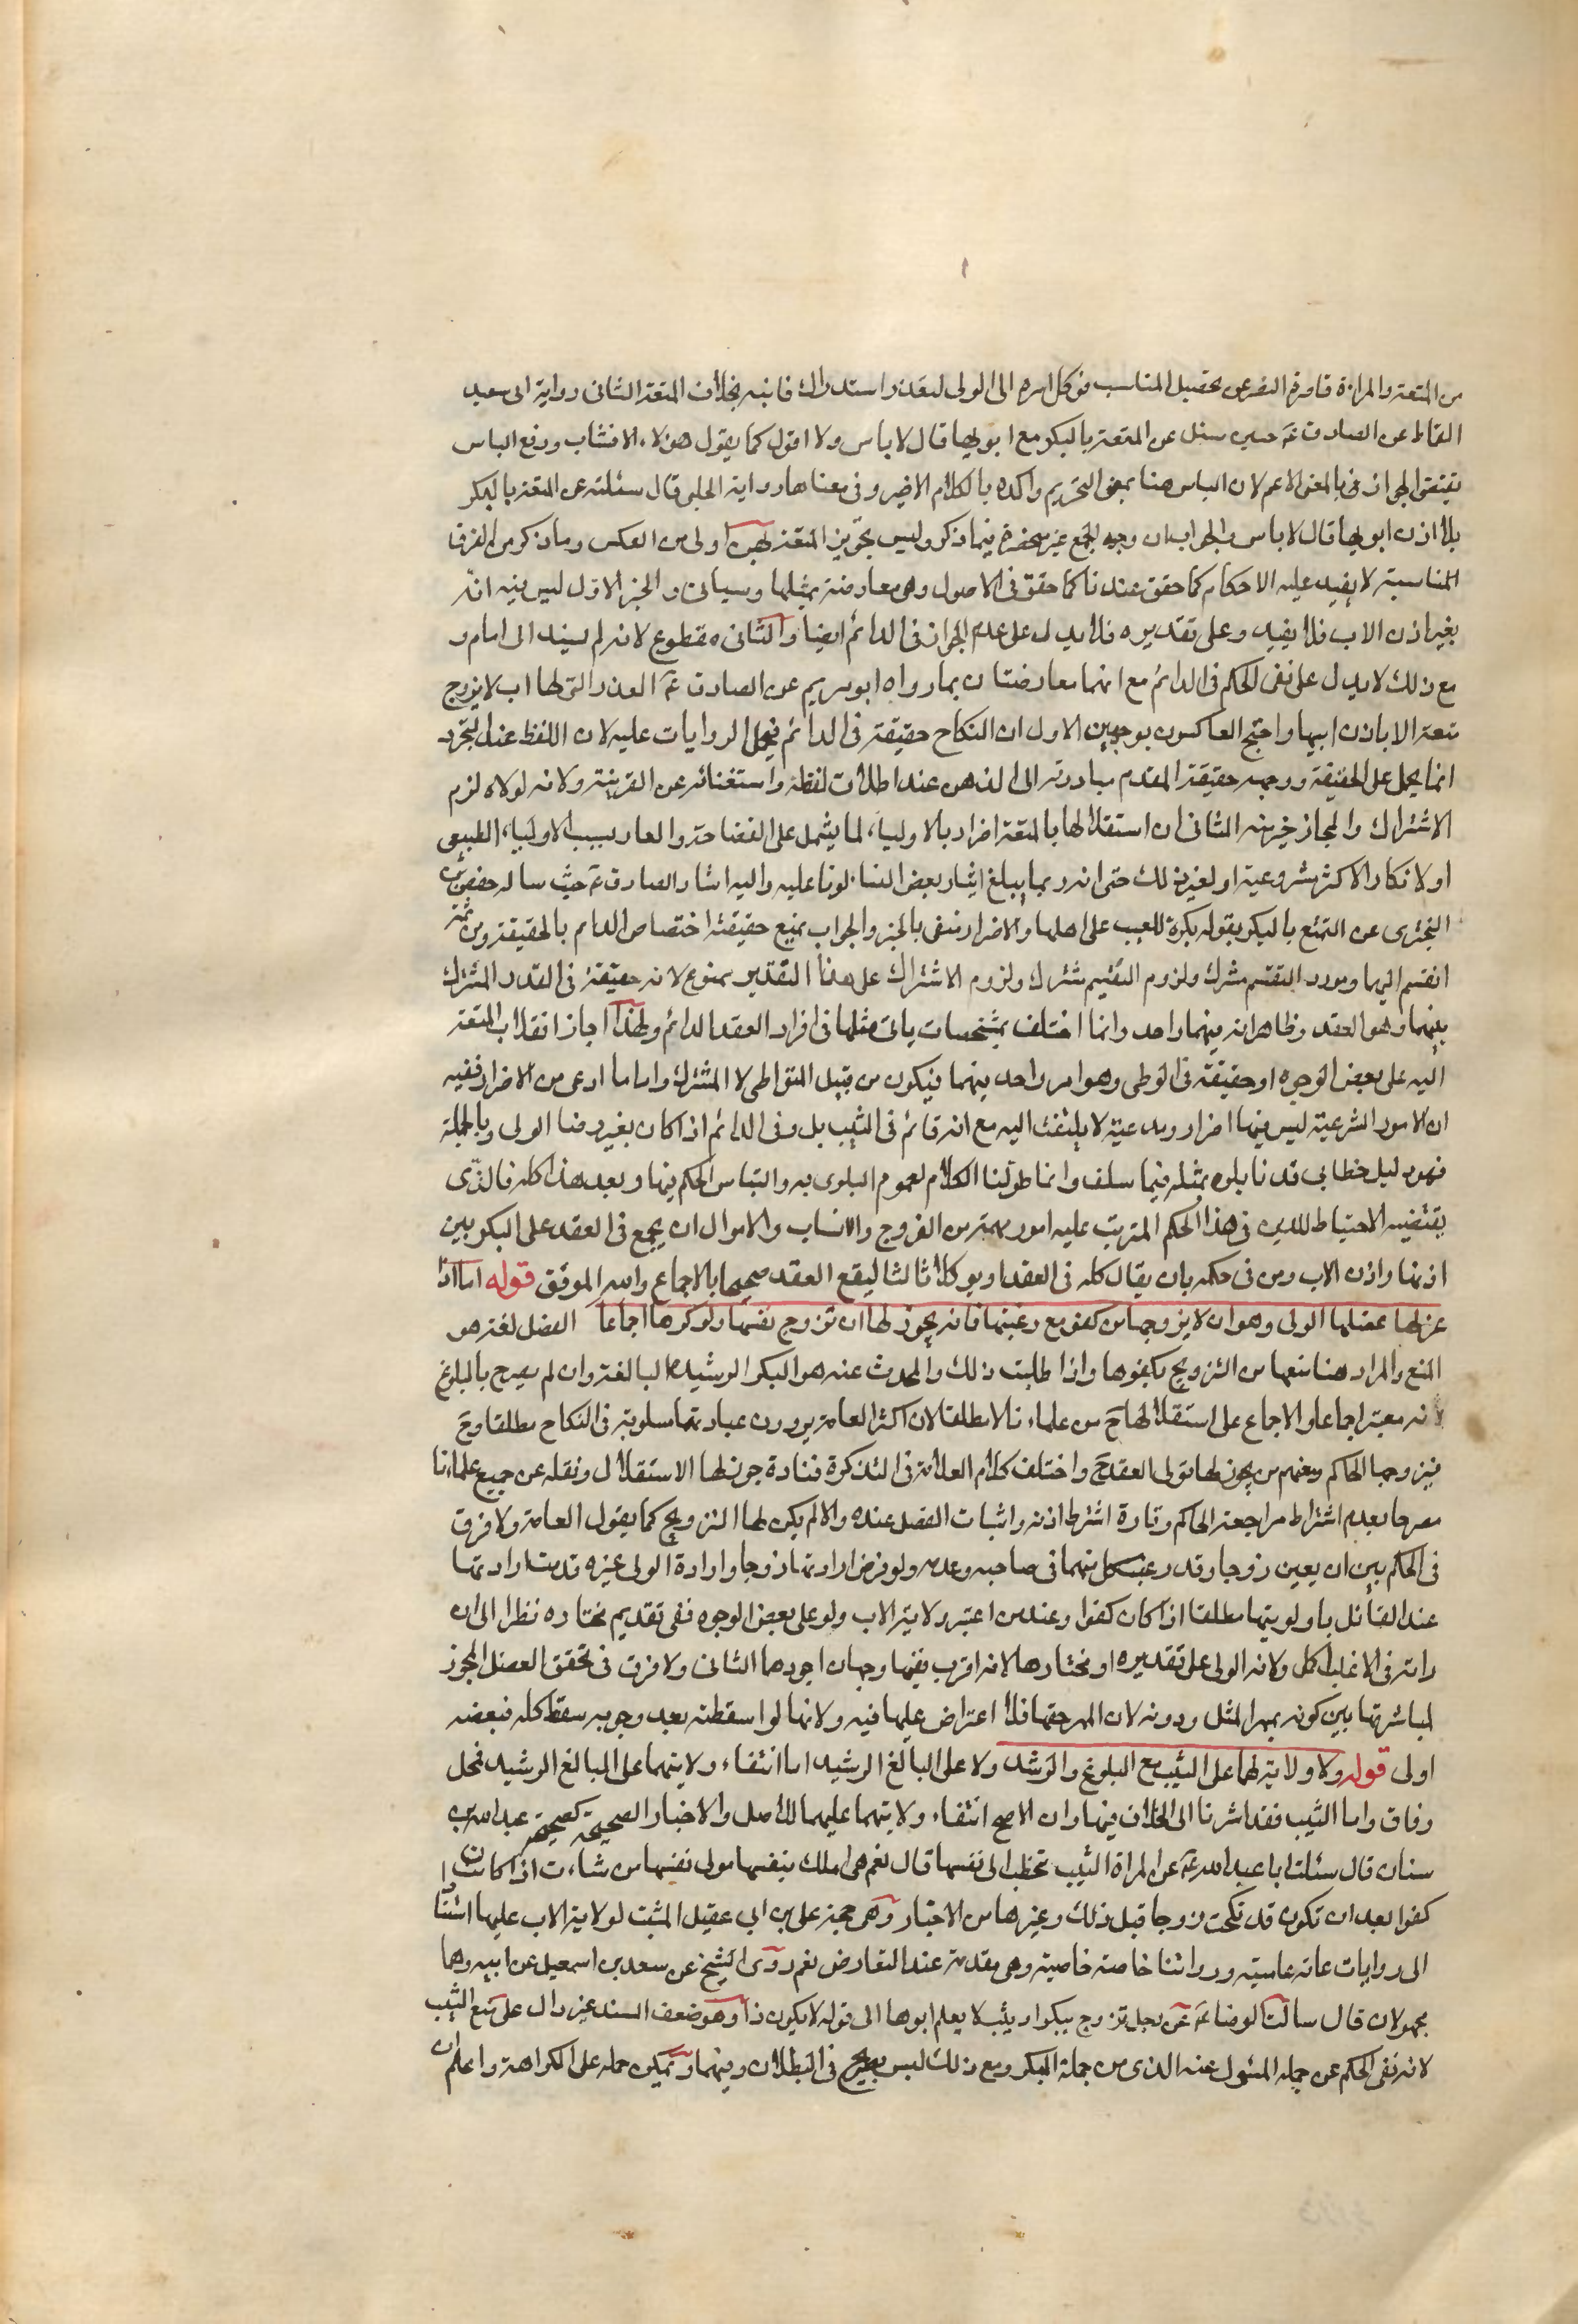 من المتعة والمراة قاصرة النظر عن تحصيل المناسب فوكل امره الى الولى لتعذر استدراك فائته بخلاف المتعة الثانى رواية ابى سعيد
القماط عن الصادق عۤ حين سئل عن المتعة بالبكر مع ابويها قال لا باس ولا اقول كما يقول هؤلاء الاقشاب ورفع الباس
يقتضى الجواز فى بالمعنى الاعم لان الباس هنا بمعنى التحريم واكده بالكلام الاخير وفى معناها رواية الحلبى قال سئلته عن المتعة بالبكر
بلا اذن ابويها قال لا باس والجواب ان وجه الجمع غير منحصر فيما ذكر وليس تجويز المتعة لهن اولى من العكس وما ذكر من الفرق
المناسبة لا يفيد عليه الاحكام كما حقق عندنا كما حقق فى الاصول وهى معارضة بمثلها وسياتى والخبر الاول ليس فيه انه
بغير اذن الاب فلا يفيد وعلى تقديره فلا يدل على عدم الجواز فى الدائم ايضا والثانى مقطوع لانه لم يسند الى امام و
مع ذلك لا يدل على نفى الحكم فى الدائم مع انهما معارضتان بما رواه ابو مريم عن الصادق عۤ العذراء التى لها اب لا تزوج
متعة الا باذن ابيها واحتج العاكسون بوجهين الاول ان النكاح حقيقة فى الدائم فيحمل الروايات عليه لان اللفظ عند التجرد
انما يحمل على الحقيقة ووجه حقيقة المقدم مبادرته الى الذهن عند اطلاق لفظه واستغنائه عن القرينة ولانه لولاه لزم
الاشتراك والمجاز خير منه الثانى ان استقلالها بالمتعة اضرار بالاولياء لما يشمل على الغضاضة والعار بسبب الاولياء الطبيعى
او لانكار الاكثر مشروعية او لغير ذلك حتى انه ربما يبلغ ايثار بعض النساء لونا عليه واليه اشار الصادق عۤ حيث ساله حفص بن
البخترى عن التمتع بالبكر بقوله يكره للعيب على اهلها والاضرار منفى بالخبر والجواب بمنع حقيقة اختصاص الدائم بالحقيقة ومن ثمة
انقسم اليهما ومورد التقسيم مشترك ولزوم التقسيم مشترك ولزوم الاشتراك على هذا التقدير ممنوع لانه حقيقة فى القدر المشترك
بينهما وهو العقد وظاهر انه فيهما واحد وانما اختلف بمشخصات ياتى مثلها فى افراد العقد الدائم ولهذا اجاز انقلاب المتعة
اليه على بعض الوجوه او حقيقة فى الوطى وهو امر واحد بينهما فيكون من قبيل المتواطى لا المشترك واما ما ادعى من الاضرار ففيه
ان الامور الشرعية ليس فيها اضرار ومدعيه لا يلتفت اليه مع انه قائم فى الثيب بل وفى الدائم اذا كان بغير رضا الولى وبالجملة
فهو دليل خطابى قد نابلوه بمثله فيما سلف وانما طولنا الكلام لعموم البلوى به والتباس الحكم فيها وبعد هذا كله فالذى
يقتضيه الاحتياط للدين فى هذا الحكم المترتب عليه امور مهمة من الفروج والانساب والاموال ان يجمع فى العقد على البكر بين
اذنها واذن الاب ومن فى حكمه بان يقال كله فى العقد او يوكلا ثالثا ليقع العقد صحيحا بالاجماع والله الموفق قوله اما اذا
عزلها عضلها الولى وهو ان لا يزوجها من كفو مع رغبتها فانه يجوز لها ان تزوج نفسها ولو كرها اجماعا العضل لغة هو
المنع والمراد هنا منعها من التزويج بكفوها واذا طلبت ذلك والمحدث عنه هو البكر الرشيدة البالغة وان لم يصرح بالبلوغ
لانه معتبر اجماعا والاجماع على استقلالها حۤ من علمائنا لا مطلقا لان اكثر العامة يرون عبارتها مسلوبة فى النكاح مطلقا وحۤ
فيزوجها الحاكم ومنهم من يجوز لها تولى العقد حۤ واختلف كلام العلامة فى التذكرة فتارة جوز لها الاستقلال ونقله عن جميع علمائنا
مصرحا بعدم اشتراط مراجعة الحاكم وتارة اشترط اذنه واثبات العضل عنده والا لم يكن لها التزويج كما يقول العامة ولا فرق
فى الحكم بين ان يعين زوجا وقد رغب كل منهما فى صاحبه وعدمه ولو فرض ارادتها زوجا وارادة الولى غيره قدمت ارادتها
عند القائل باولويتها مطلقا اذا كان كفوا وعند من اعتبر ولاية الاب ولو على بعض الوجوه ففى تقديم مختاره نظرا الى ان
رايه فى الاغلب اكمل ولانه الولى على تقديره او مختارها لانه اقرب يفيها وجهان اجودهما الثانى ولا فرق فى تحقق العضل المجوز
لمباشرتها بين كونه بمهر المثل ودونه لان المهر حقها فلا اعتراض عليها فيه ولانها لو اسقطته بعد وجوبه سقط كله فبعضه
اولى قوله ولا ولاية لهما على الثيب مع البلوغ والرشد ولا على البالغ الرشيد اما انتفاء ولايتهما على البالغ الرشيد فمحل
وفاق واما الثيب فقد اشرنا الى الخلاف فيها وان الاصح انتفاء ولايتهما عليهما للاصل والاخبار الصحيحة كصحيحة عبد الله بن
سنان قال سئلت ابا عبد الله عۤ عن المراة الثيب تخطب الى نفسها قال نعم هى املك بنفسها تولى نفسها من شاءت اذا كان
كفوا بعد ان تكون قد نكحت زوجا قبل ذلك وغيرها من الاخبار وهى حجة على بن ابى عقيل المثبت لولاية الاب عليها استنادا
الى روايات عامة عامية وروايتنا خاصة خاصية وهى مقدمة عند التعارض نعم روى الشيخ عن سعد بن اسمعيل عن ابيه وهما
مجهولان قال سالت الرضا عۤ عن رجل تزوج ببكر او ثيب لا يعلم ابوها الى قوله لا يكون ذا وهو ضعف السند غير دال على منع الثيب
لانه نفى الحكم عن جملة المسئول عنه الذى من جملة البكر ومع ذلك ليس بصريح فى البطلان وفيهما ويمكن حمله على الكراهة واعلم ان